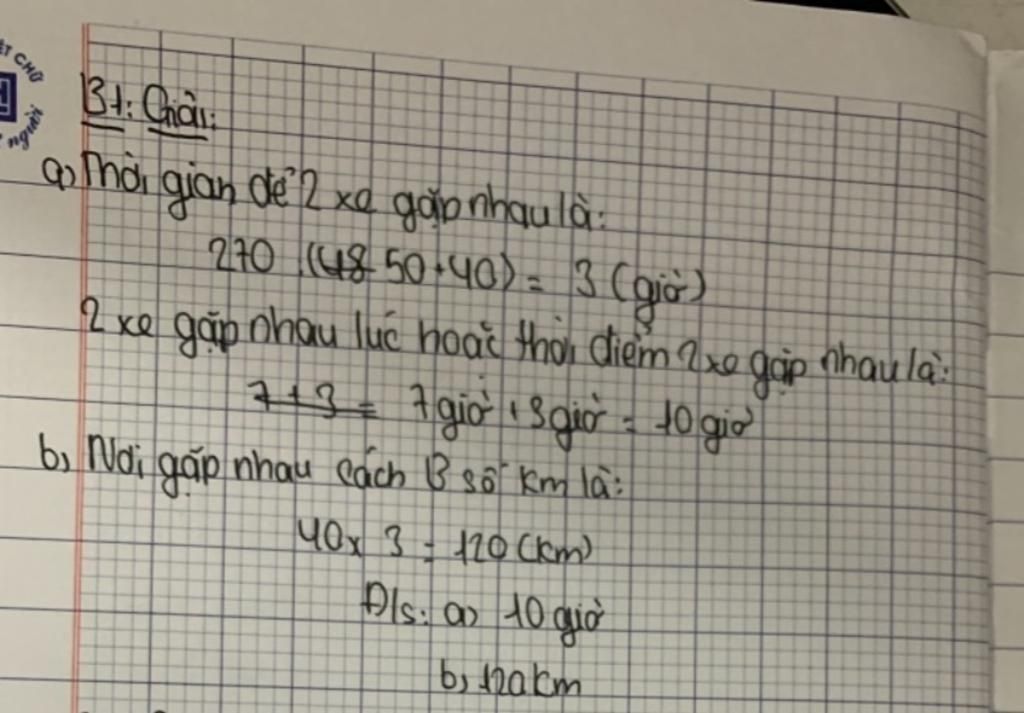 ẾT CHỮ
người
B1: Giải:
a) Thời gian để 2 xe gặp nhau là:
270 : (48 50 + 40) = 3 (giờ)
2 xe gặp nhau lúc hoặc thời điểm 2 xe gặp nhau là:
7 + 3 = 7 giờ + 3 giờ = 10 giờ
b, Nơi gặp nhau cách B số km là:
40 x 3 = 120 (km)
Đ/s: a) 10 giờ
b, 120 km